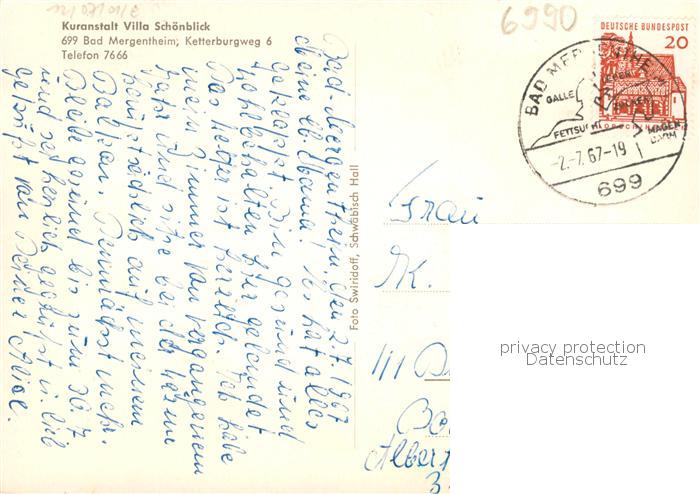 6990
Kuranstalt Villa Schönblick
699 Bad Mergentheim, Ketterburgweg 6
Telefon 7666
DEUTSCHE BUNDESPOST
20
BAD MERGENTHEIM
LEBER
GALLE
ZUCKER
FETTSUCHT
MAGEN
DARM
-2.-7.67-19
699
Bad Mergentheim, den 2.7.1967
Meine lb. Mama! Es hat alles
geklappt. Bin gesund und
wohlbehalten hier gelandet
Das Wetter ist herrlich. Ich habe
mein Zimmer vom vergangenem
Jahr und sitze bei der Wärme
hauptsächlich auf meinem
Balkon. Demnächst mehr.
Bleibe gesund bis zum 30.7
und sei herzlich gegrüßt in Lieb
geküßt von Deiner
Foto Swiridoff, Schwäbisch Hall
Frau
M.
Albert
3
privacy protection
Datenschutz